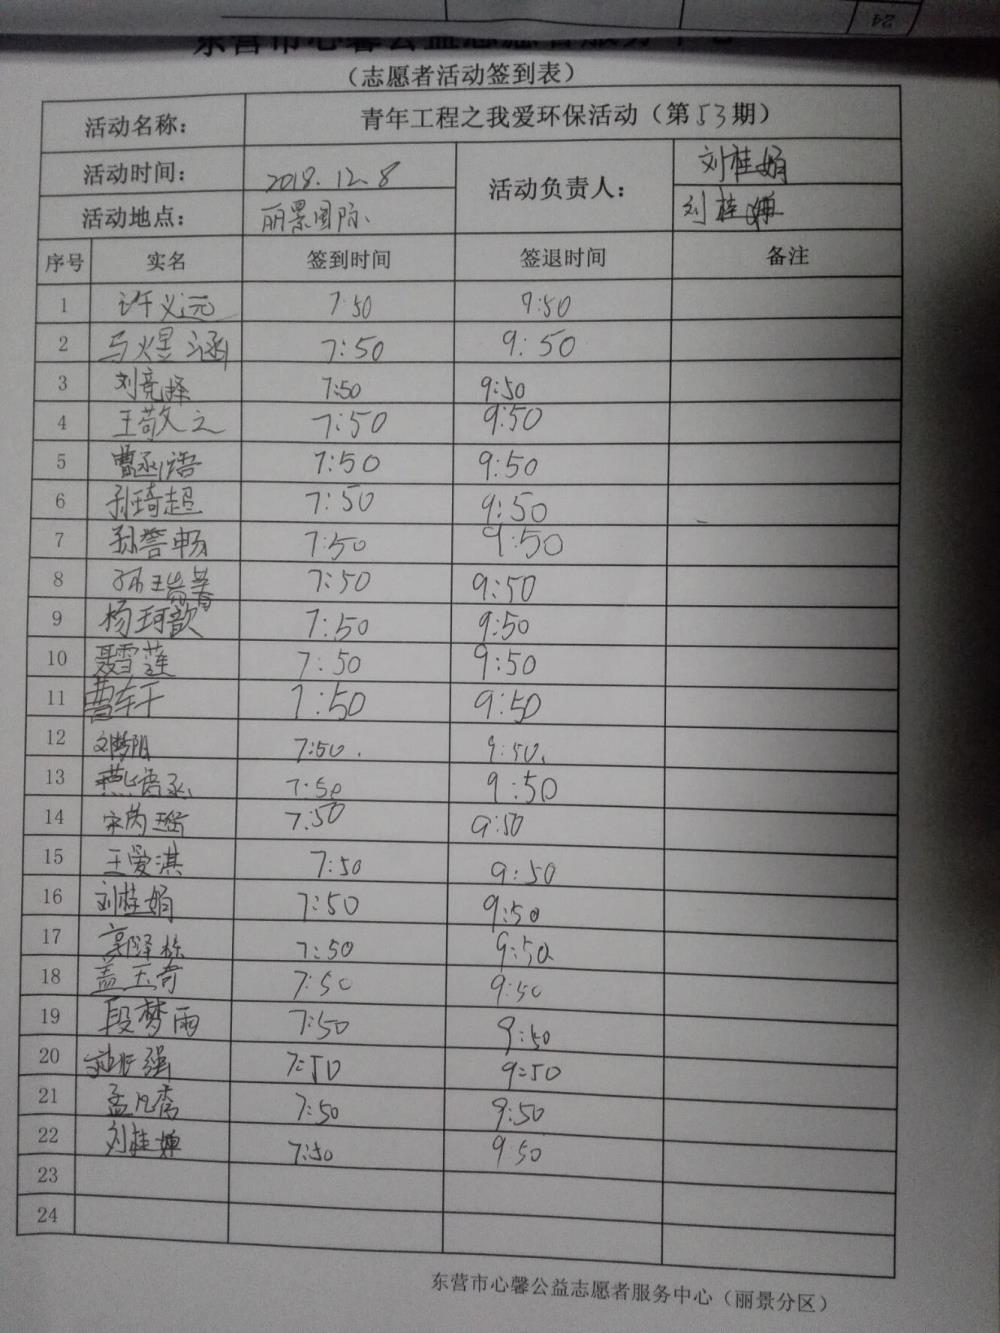 24
东营市心馨公益志愿者服务中心
（志愿者活动签到表）
活动名称： 青年工程之我爱环保活动（第53期）
活动时间： 2018.12.8 活动负责人： 刘桂娟
活动地点： 丽景国际 刘桂婵
序号 实名 签到时间 签退时间 备注
1 许义元 7:50 9:50
2 马煜涵 7:50 9:50
3 刘竞择 7:50 9:50
4 王敬之 7:50 9:50
5 曹函语 7:50 9:50
6 孙琦超 7:50 9:50
7 孙誉畅 7:50 9:50
8 7:50 9:50
9 杨珂歆 7:50 9:50
10 聂雪莲 7:50 9:50
11 7:50 9:50
12 刘梦阳 7:50. 9:50.
13 7:50 9:50
14 7:50 9:50
15 王爱淇 7:50 9:50
16 刘桂娟 7:50 9:50
17 郭泽栋 7:50 9:50
18 盖玉奇 7:50 9:50
19 段梦雨 7:50 9:50
20 7:50 9:50
21 孟凡秀 7:50 9:50
22 刘桂婵 7:50 9:50
23
24
东营市心馨公益志愿者服务中心（丽景分区）